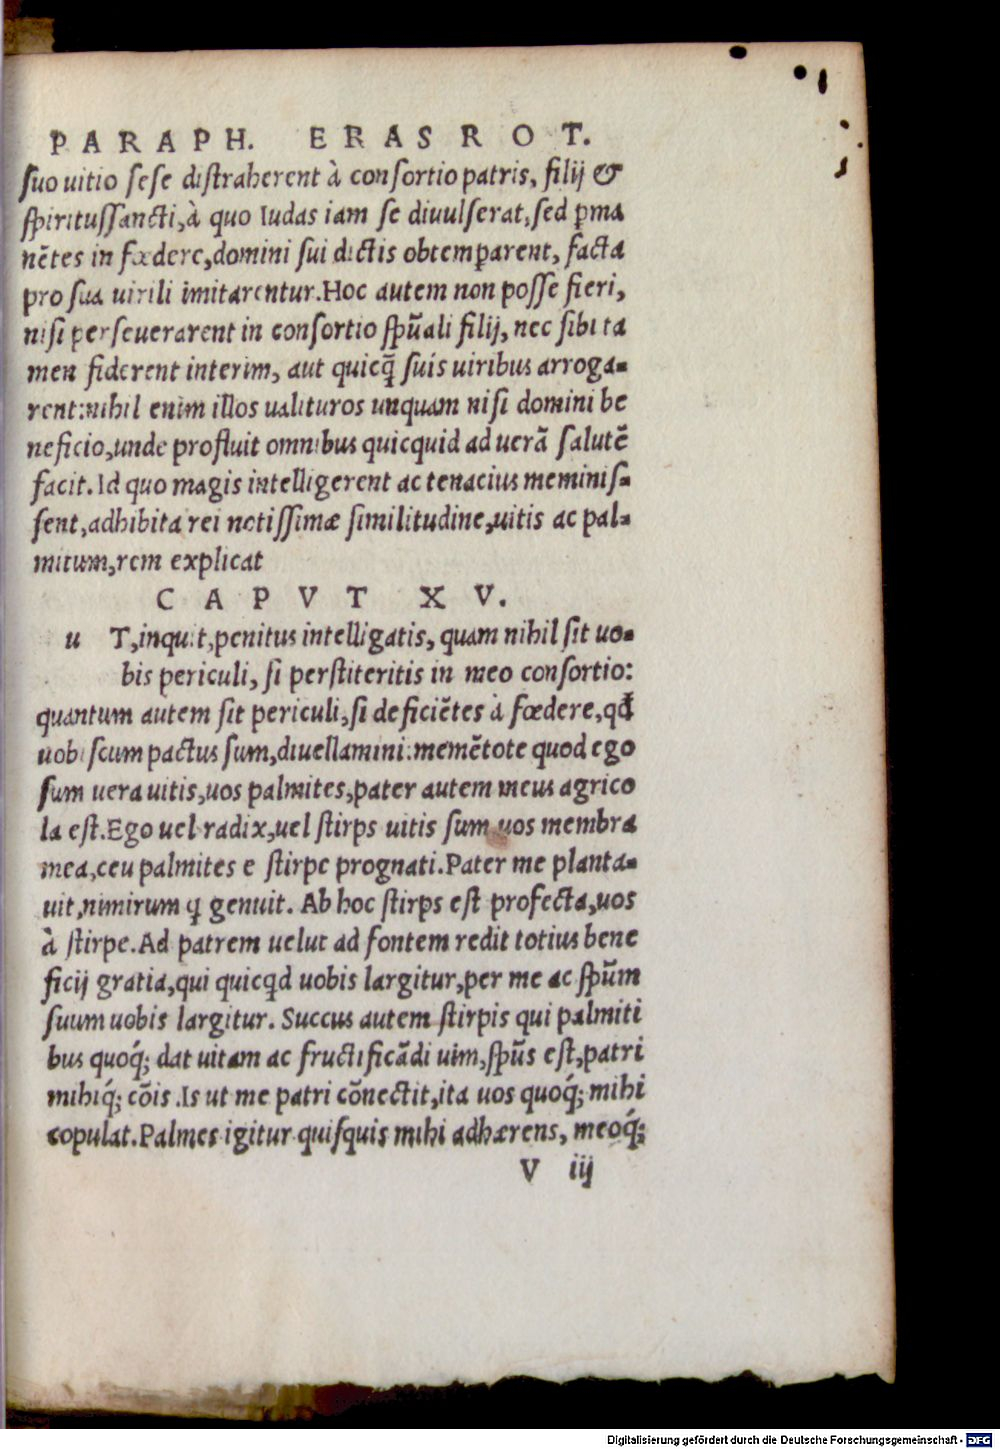 PARAPH. ERAS ROT.
suo uitio sese distraherent à consortio patris, filij &
spiritussancti, à quo Iudas iam se diuulserat, sed ꝑma
nētes in fœdere, domini sui dictis obtemꝑarent, facta
pro sua uirili imitarentur. Hoc autem non posse fieri,
nisi perseuerarent in consortio spūali filij, nec sibi ta
men fiderent interim, aut quicq̃ suis uiribus arroga-
rent: nihil enim illos ualituros unquam nisi domini be
neficio, unde profluit omnibus quicquid ad uerā salutē
facit. Id quo magis intelligerent ac tenacius meminis-
sent, adhibita rei notissimæ similitudine, uitis ac pal-
mitum, rem explicat
CAPVT XV.
u T, inquit, penitus intelligatis, quam nihil sit uo-
bis periculi, si perstiteritis in meo consortio:
quantum autem sit periculi, si deficiētes à fœdere, qđ
uobiscum pactus sum, diuellamini: memētote quod ego
sum uera uitis, uos palmites, pater autem meus agrico
la est. Ego uel radix, uel stirps uitis sum, uos membra
mea, ceu palmites e stirpe prognati. Pater me planta-
uit, nimirum ꝗ genuit. Ab hoc stirps est profecta, uos
à stirpe. Ad patrem uelut ad fontem redit totius bene
ficij gratia, qui quicꝗd uobis largitur, per me ac spūm
suum uobis largitur. Succus autem stirpis qui palmiti
bus quoq́; dat uitam ac fructificādi uim, spūs est, patri
mihiq́; cōis. Is ut me patri cōnectit, ita uos quoq́; mihi
copulat. Palmes igitur quisquis mihi adhærens, meoq́;
V iij
Digitalisierung gefördert durch die Deutsche Forschungsgemeinschaft - DFG